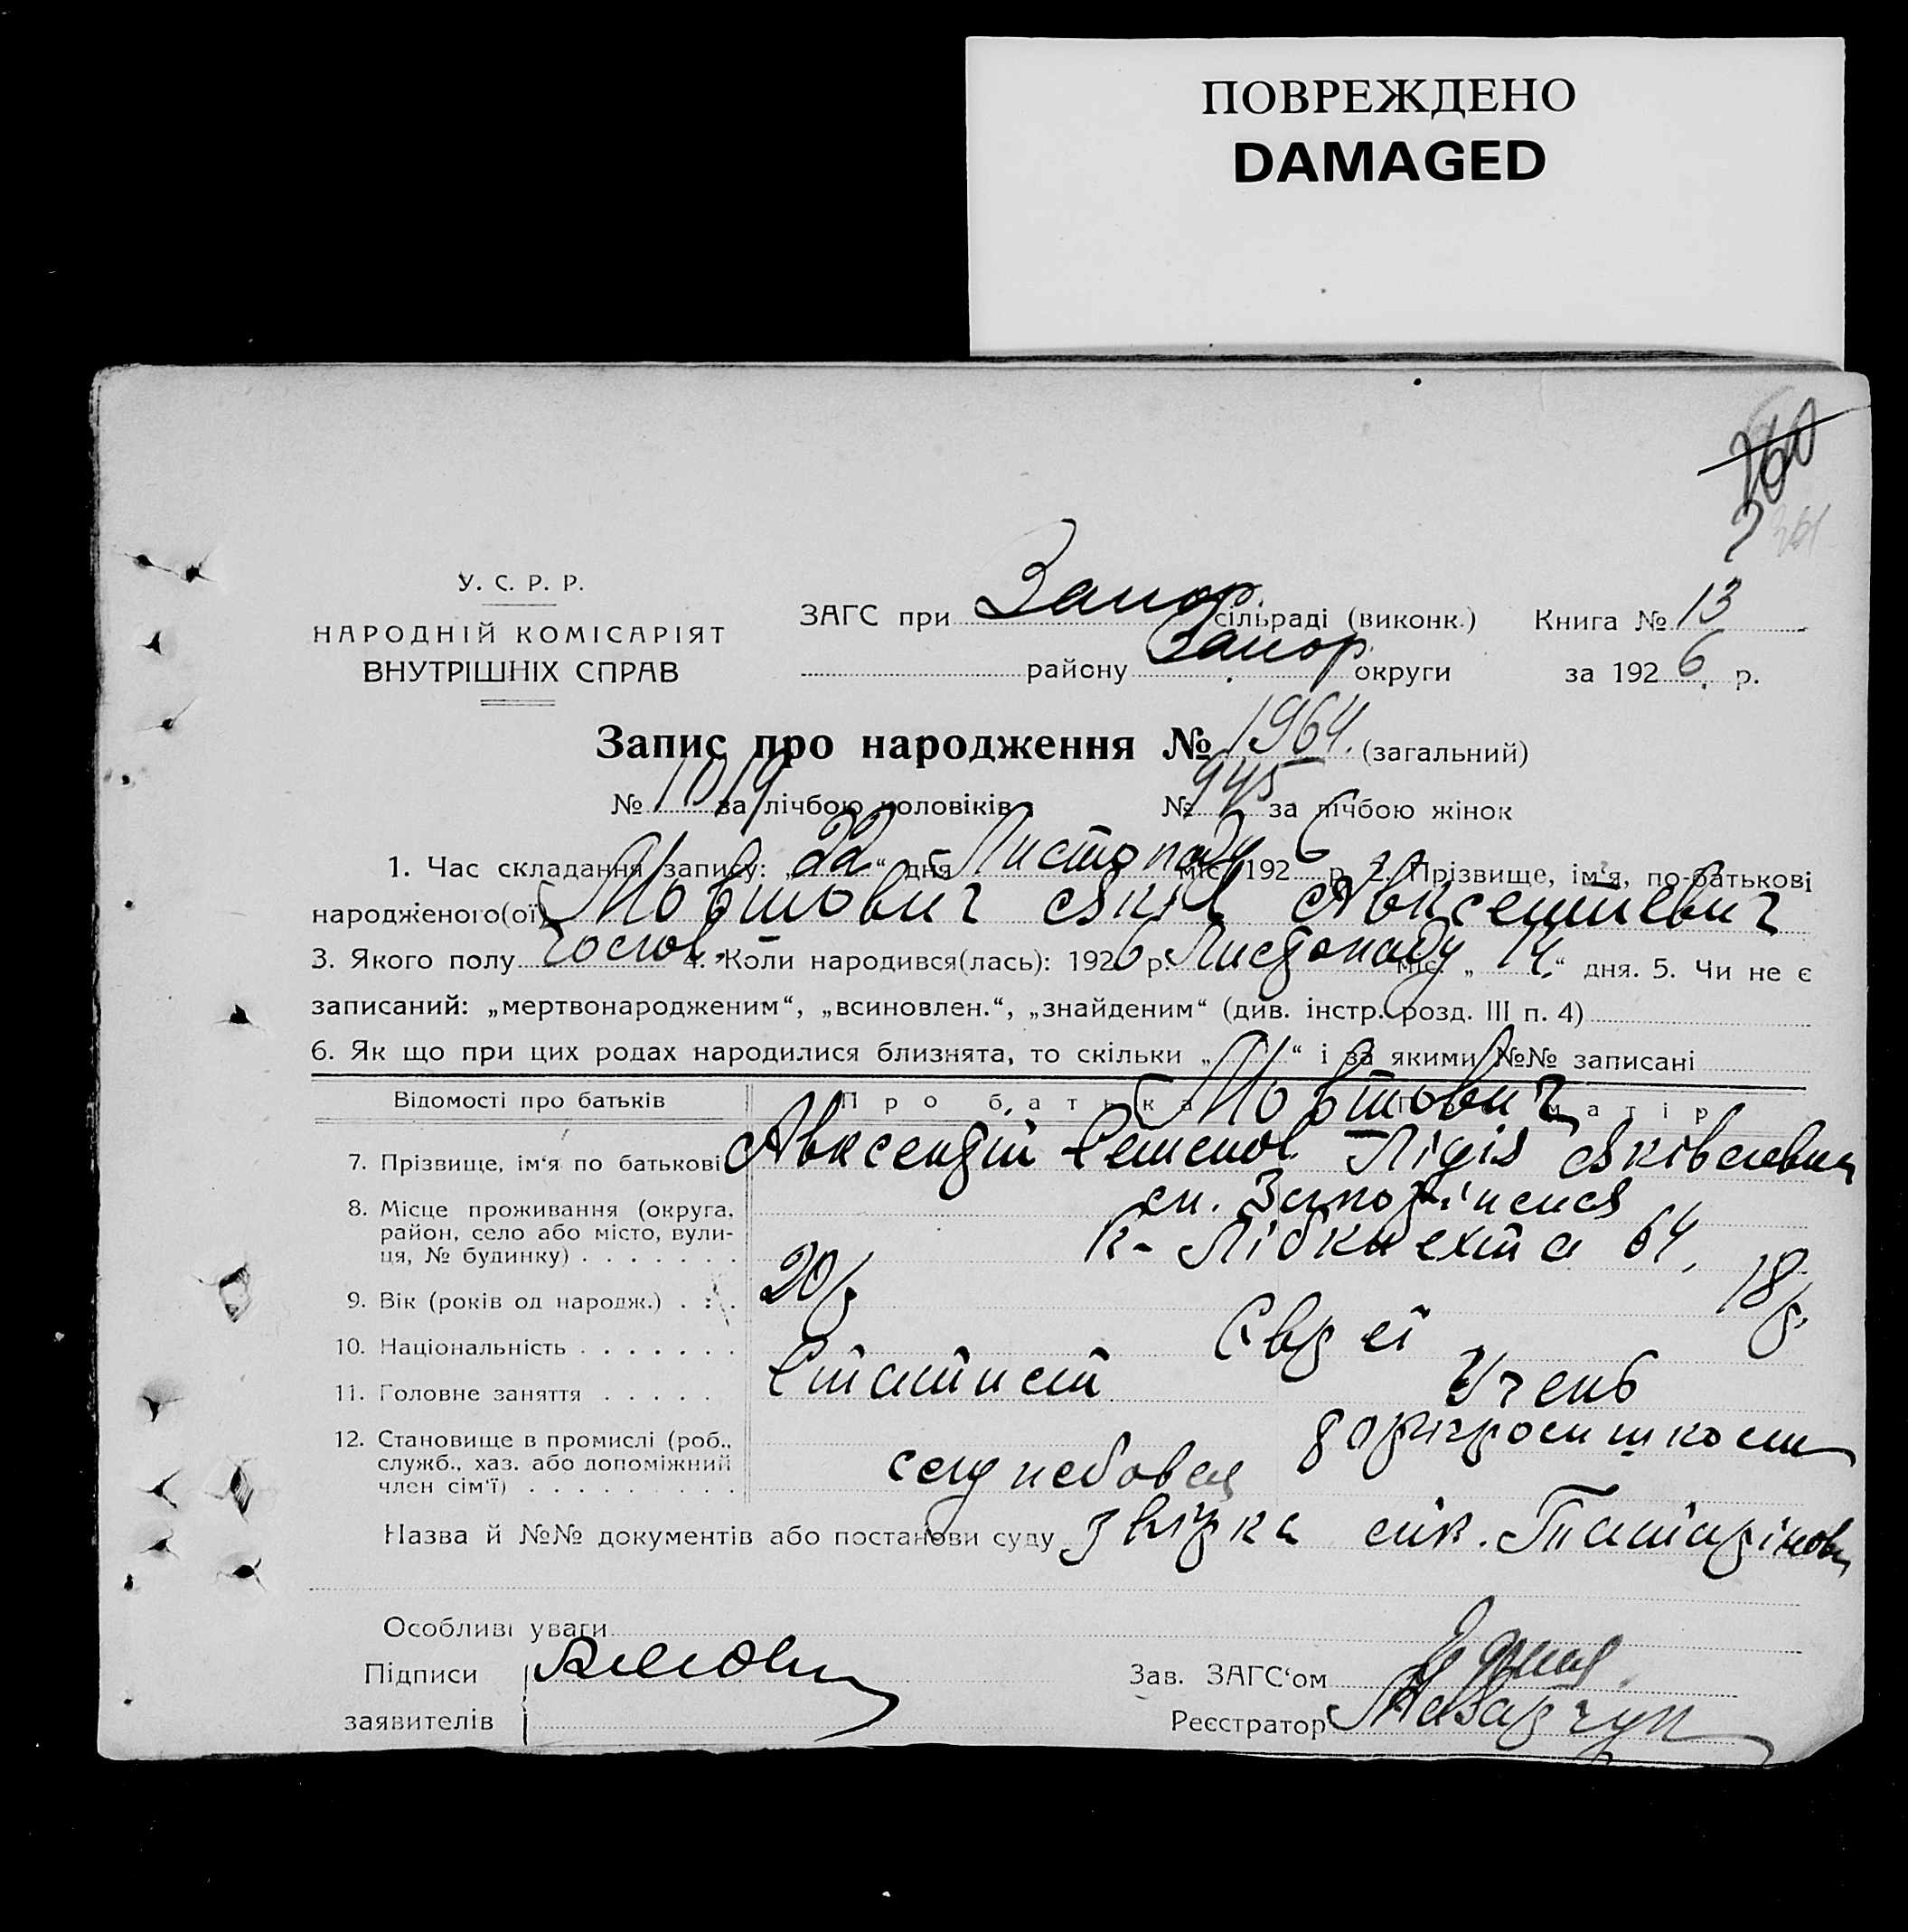 ПОВРЕЖДЕНО
DAMAGED
361
У. С. Р. Р.
НАРОДНІЙ КОМІСАРІЯТ
ВНУТРІШНІХ СПРАВ
ЗАГС при Запор. сільраді (виконк.) Книга № 13
району Запор. округи за 1926 р.
Запис про народження № 1964. (загальний)
№ 1019 за лічбою чоловіків № 945 за лічбою жінок
1. Час складання запису: „22“ дня Листопаду міс. 1926 р. 2. Прізвище, ім'я, по-батькові
народженого(ої) Мовшович Яків Авксентієвич
3. Якого полу чолов. 4. Коли народився(лась): 1926 р. Листопаду міс. „14.“ дня. 5. Чи не є
записаний: „мертвонародженим“, „всиновлен.“, „знайденим“ (див. інстр. розд. III п. 4)
6. Як що при цих родах народилися близнята, то скільки „ “ і за якими №№ записані
Відомості про батьків Про батька Мовшович матір
7. Прізвище, ім'я по батькові Авксентій Семенов. Лідія Яківлевна
8. Місце проживання (округа, район, село або місто, вулиця, № будинку) м. Запоріжжя
К. Лібкнехта 64,
9. Вік (років од народж.) 20 18
10. Національність Євреї
11. Головне заняття Статист Учень
12. Становище в промислі (роб., служб., хаз. або допоміжний член сім'ї) школи
Назва й №№ документів або постанови суду
Особливі уваги
Підписи
заявителів
Зав. ЗАГС'ом
Реєстратор